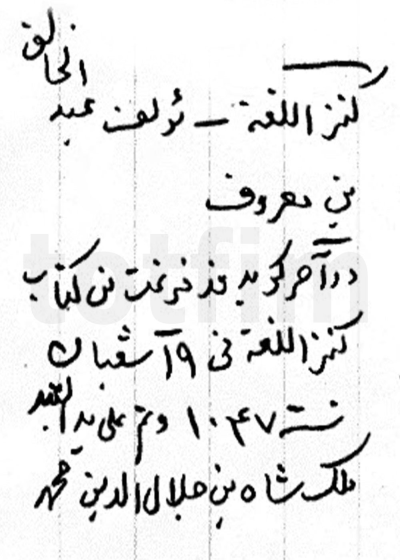 الخالق
كنز اللغة – مؤلف عبد
بن معروف
در آخر گوید قد فرغت من كتاب
كنز اللغة فى ١٩ شعبان
سنة ١٠٤٧ وتم على ید العبد
ملك شاه بن جلال الدین محمد
totfim